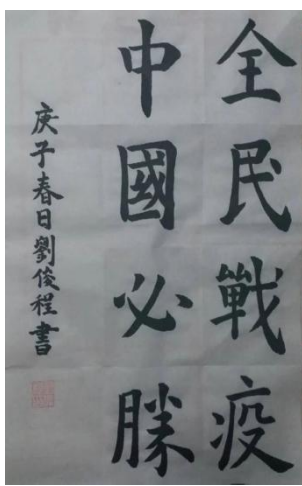 全民戰疫
中國必勝
庚子春日劉俊程書